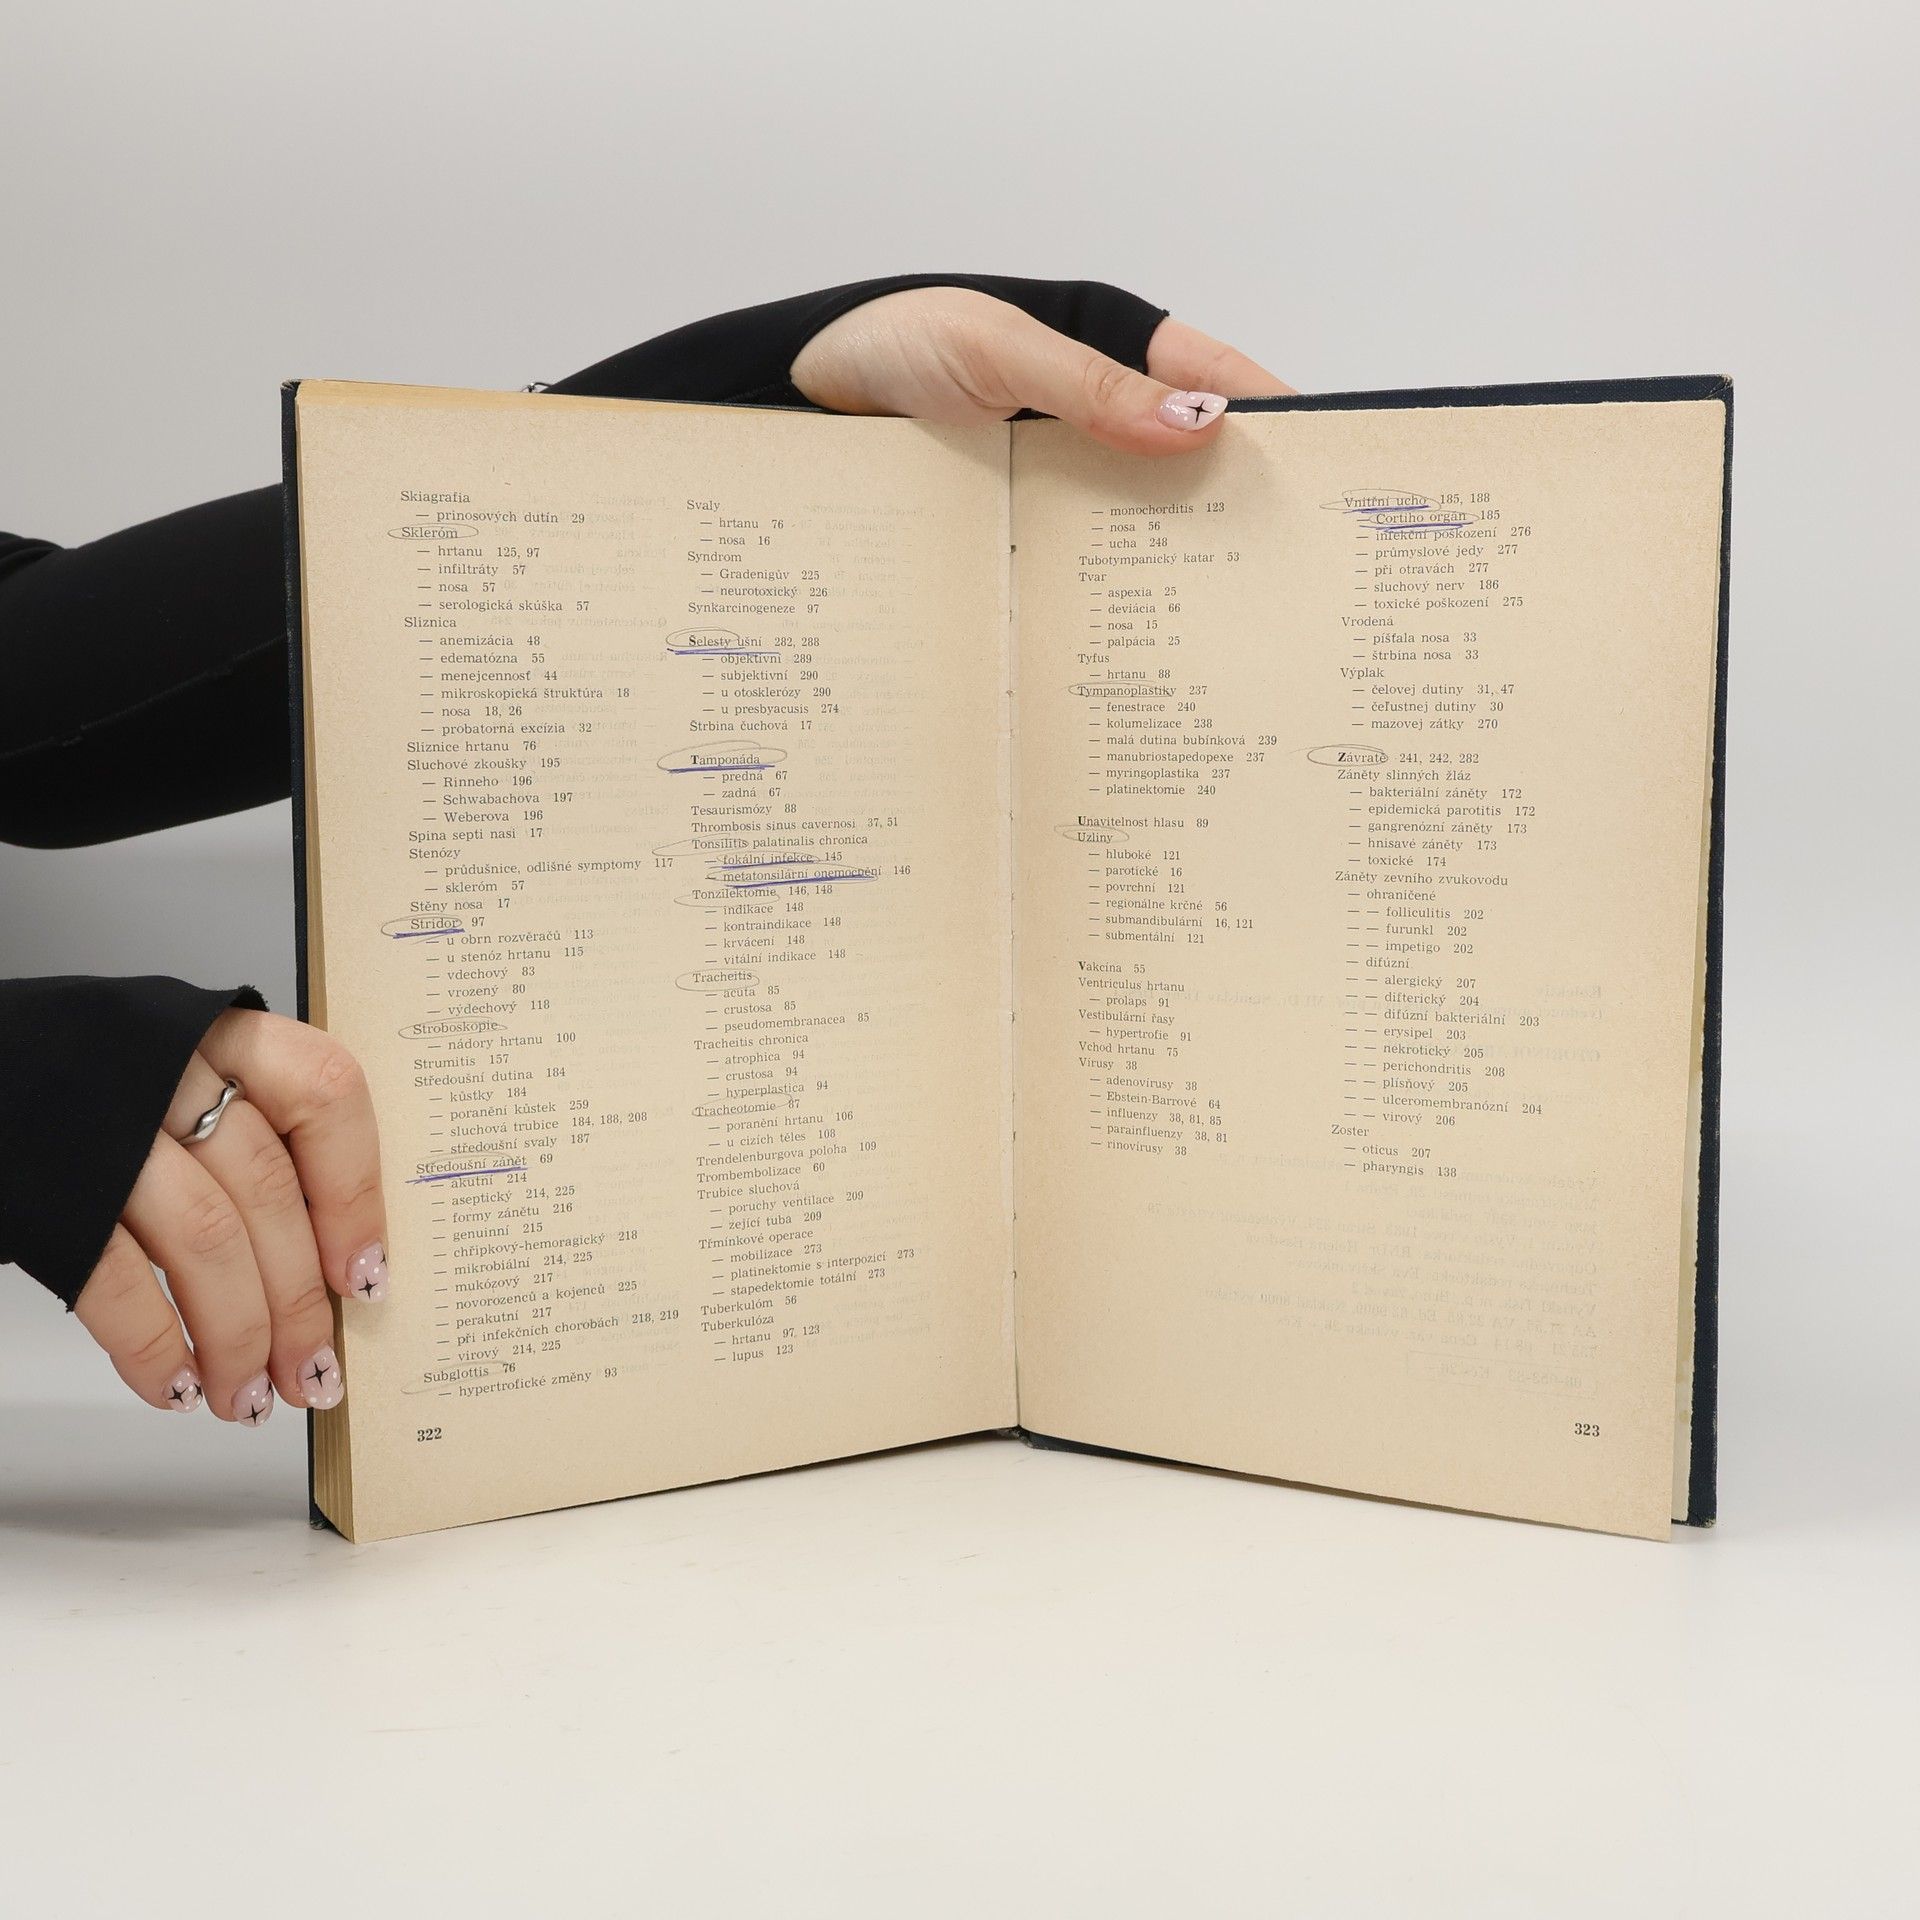 Skiagrafia
— prinosových dutín 29
Skleróm
— hrtanu 125, 97
— infiltráty 57
— nosa 57
— serologická skúška 57
Sliznica
— anemizácia 48
— edematózna 55
— menejcennosť 44
— mikroskopická štruktúra 18
— nosa 18, 26
— probatorná excízia 32
Sliznice hrtanu 76
Sluchové zkoušky 195
— Rinneho 196
— Schwabachova 197
— Weberova 196
Spina septi nasi 17
Stenózy
— průdušnice, odlišné symptomy 117
— skleróm 57
Stěny nosa 17
Stridor 97
— u obrn rozvěračů 113
— u stenóz hrtanu 115
— vdechový 83
— vrozený 80
— výdechový 118
Stroboskopie
— nádory hrtanu 100
Strumitis 157
Středoušní dutina 184
— kůstky 184
— poranění kůstek 259
— sluchová trubice 184, 188, 208
— středoušní svaly 187
Středoušní zánět 69
— akutní 214
— aseptický 214, 225
— formy zánětu 216
— genuinní 215
— chřipkový-hemoragický 218
— mikrobiální 214, 225
— mukózový 217
— novorozenců a kojenců 225
— perakutní 217
— při infekčních chorobách 218, 219
— virový 214, 225
Subglottis 76
— hypertrofické změny 93
Svaly
— hrtanu 76
— nosa 16
Syndrom
— Gradenigův 225
— neurotoxický 226
Synkarcinogeneze 97
Šelesty ušní 282, 288
— objektivní 289
— subjektivní 290
— u otosklerózy 290
— u presbyacusis 274
Štrbina čuchová 17
Tamponáda
— predná 67
— zadná 67
Tesaurismózy 88
Thrombosis sinus cavernosi 37, 51
Tonsilitis palatinalis chronica
— fokální infekce 145
— metatonsilární onemocnění 146
Tonzilektomie 146, 148
— indikace 148
— kontraindikace 148
— krvácení 148
— vitální indikace 148
Tracheitis
— acuta 85
— crustosa 85
— pseudomembranacea 85
Tracheitis chronica
— atrophica 94
— crustosa 94
— hyperplastica 94
Tracheotomie 87
— poranění hrtanu 106
— u cizích těles 108
Trendelenburgova poloha 109
Trombembolizace 60
Trubice sluchová
— poruchy ventilace 209
— zející tuba 209
Třmínkové operace
— mobilizace 273
— platinektomie s interpozicí 273
— stapedektomie totální 273
Tuberkulóm 56
Tuberkulóza
— hrtanu 97, 123
— lupus 123
322
— monochorditis 123
— nosa 56
— ucha 248
Tubotympanický katar 53
Tvar
— aspexia 25
— deviácia 66
— nosa 15
— palpácia 25
Tyfus
— hrtanu 88
Tympanoplastiky 237
— fenestrace 240
— kolumelizace 238
— malá dutina bubínková 239
— manubriostapedopexe 237
— myringoplastika 237
— platinektomie 240
Unavitelnost hlasu 89
Uzliny
— hluboké 121
— parotické 16
— povrchní 121
— regionálne krčné 56
— submandibulární 16, 121
— submentální 121
Vakcína 55
Ventriculus hrtanu
— prolaps 91
Vestibulární řasy
— hypertrofie 91
Vchod hrtanu 75
Vírusy 38
— adenovírusy 38
— Ebstein-Barrové 64
— influenzy 38, 81, 85
— parainfluenzy 38, 81
— rinovírusy 38
Vnitřní ucho 185, 188
— Cortiho orgán 185
— infekční poškození 276
— průmyslové jedy 277
— při otravách 277
— sluchový nerv 186
— toxické poškození 275
Vrodená
— píšťala nosa 33
— štrbina nosa 33
Výplak
— čelovej dutiny 31, 47
— čeľustnej dutiny 30
— mazovej zátky 270
Závratě 241, 242, 282
Záněty slinných žláz
— bakteriální záněty 172
— epidemická parotitis 172
— gangrenózní záněty 173
— hnisavé záněty 173
— toxické 174
Záněty zevního zvukovodu
— ohraničené
— — folliculitis 202
— — furunkl 202
— — impetigo 202
— difúzní
— — alergický 207
— — difterický 204
— — difúzní bakteriální 203
— — erysipel 203
— — nekrotický 205
— — perichondritis 208
— — plísňový 205
— — ulceromembranózní 204
— — virový 206
Zoster
— oticus 207
— pharyngis 138
323